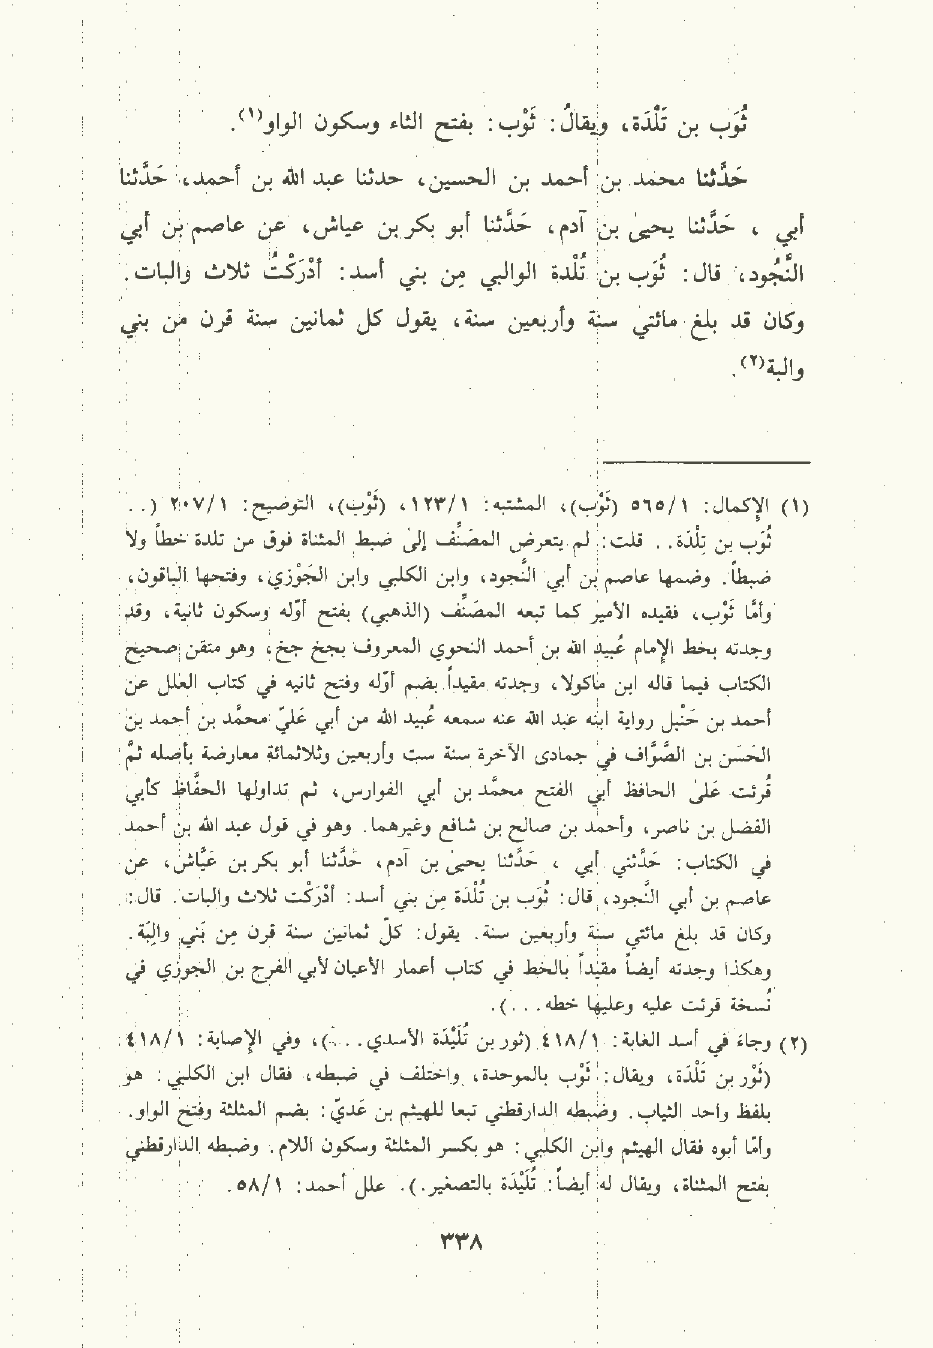 ثُوَب بن تَلْدَة، ويقالُ: ثَوْب: بفتح الثاء وسكون الواو(١).
حَدَّثنا محمد بن أحمد بن الحسين، حدثنا عبد الله بن أحمد، حَدَّثنا
أبي ، حَدَّثنا يحيىٰ بن آدم، حَدَّثنا أبو بكر بن عياش، عن عاصم بن أبي
النَّجُود، قال: ثُوَب بن تُلْدة الوالبي مِن بني أسد: أَدْرَكْتُ ثلاث والبات.
وكان قد بلغ مائتي سنة وأربعين سنة، يقول كل ثمانين سنة قرن من بني
والبة(٢).
(١) الإكمال: ١/ ٥٦٥ (ثَوْب)، المشتبه: ١/ ١٢٣، (ثَوْب)، التوضيح: ١/ ٢٠٧ (..
ثُوَب بن تِلْدَة.. قلت: لم يتعرض المصَنِّف إلىٰ ضبط المثناة فوق من تدلة خطأ ولا
ضبطاً. وضمها عاصم بن أبي النجود، وابن الكلبي وابن الجَوْزي، وفتحها الباقون،
وأمَّا ثَوْب، فقيده الأمير كما تبعه المصَنِّف (الذهبي) بفتح أوّله وسكون ثانية، وقد
وجدته بخط الإمام عُبيد الله بن أحمد النحوي المعروف بجخ جخ، وهو متقن صحيح
الكتاب فيما قاله ابن ماكولا، وجدته مقيداً بضم أوّله وفتح ثانيه في كتاب العلل عن
أحمد بن حَنْبل رواية ابنه عبد الله عنه سمعه عُبيد الله من أبي عَليّ محمَّد بن أحمد بن
الحَسن بن الصَّواف في جمادى الآخرة سنة ست وأربعين وثلاثمائة معارضة بأصله ثمَّ
قُرئت علىٰ الحافظ أبي الفتح محمَّد بن أبي الفوارس، ثم تداولها الحفَّاظ كأبي
الفضل بن ناصر، وأحمد بن صالح بن شافع وغيرهما. وهو في قول عبد الله بن أحمد
في الكتاب: حَدَّثني أبي ، حَدَّثنا يحيىٰ بن آدم، حَدَّثنا أبو بكر بن عَيَّاش، عن
عاصم بن أبي النَّجود، قال: ثُوَب بن تُلْدَة مِن بني أسد: أدْرَكْت ثلاث والبات. قال:
وكان قد بلغ مائتي سنة وأربعين سنة. يقول: كلّ ثمانين سنة قرن مِن بَني والِبَة.
وهكذا وجدته أيضاً مقيداً بالخط في كتاب أعمار الأعيان لأبي الفرج بن الجوْزي في
نُسخة قرئت عليه وعليها خطه...).
(٢) وجاء في أسد الغابة: ١/ ٤١٨ (ثور بن تُلَيْدَة الأسدي...)، وفي الإصابة: ١/ ٤١٨:
(ثَوْر بن تلْدَة، ويقال: ثَوْب بالموحدة، واختلف في ضبطه، فقال ابن الكلبي: هو
بلفظ واحد الثياب. وضبطه الدارقطني تبعاً للهيثم بن عَديّ: بضم المثلثة وفتح الواو.
وأمّا أبوه فقال الهيثم وابن الكلبي: هو بكسر المثلثة وسكون اللام. وضبطه الدارقطني
بفتح المثناة، ويقال له أيضاً: تُلَيْدَة بالتصغير.). علل أحمد: ١/ ٥٨.
٣٣٨